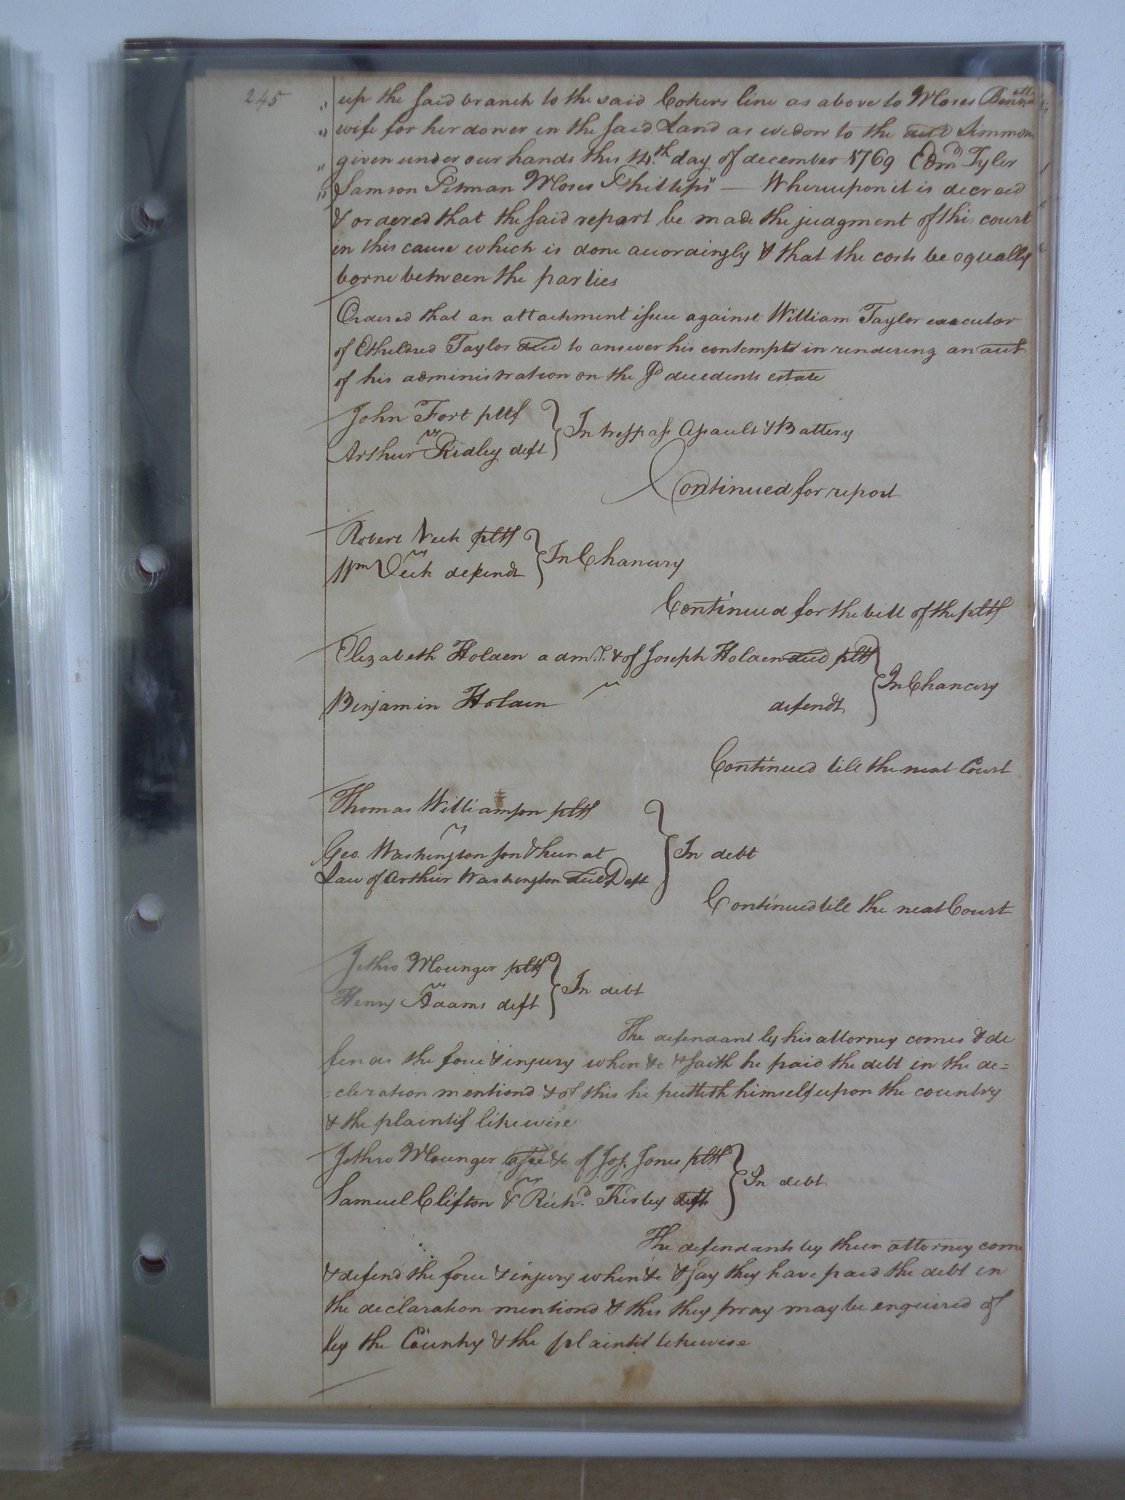 245
" up the said branch to the said Cokers line as above to Moses
" wife for her dower in the said Land as widow to the decd Simmons
" given under our hands this 14.th day of december 1769 Edm.d Tyler
" Samson Pitman Moses Phillips" — Whereupon it is decreed
& ordered that the said report be made the judgment of this court
in this cause which is done accordingly & that the costs be equally
borne between the parties
Ordered that an attachment issue against William Taylor executor
of Etheldred Taylor decd to answer his contempt in rendering an acct
of his administration on the sd decedents estate
John Fort pltf
vs
Arthur Ridley deft
In trespass Assault & Battery
Continued for report
Robert pltf
vs
Wm defendt
In Chancery
Continued for the bill of the pltf
Elizabeth Holden admr. & of Joseph Holden decd pltf
vs
Benjamin Holden defendt
In Chancery
Continued till the next Court
Thomas Williamson pltf
vs
Geo. Washington son & heir at
Law of Arthur Washington decd Deft
In debt
Continued till the next Court
Jethro Mounger pltf
vs
Henry Adams deft
In debt
The defendant by his attorney comes & de
fends the force & injury when &c & saith he paid the debt in the de=
=claration mentiond & of this he putteth himself upon the country
& the plaintif likewise
Jethro Mounger assee &c of Jos. Jones pltf
vs
Samuel Clifton & Richd. Kirby defts
In debt
The defendants by their attorney come
& defend the force & injury when &c & say they have paid the debt in
the declaration mentiond & this they pray may be enquired of
by the Country & the plaintif likewise